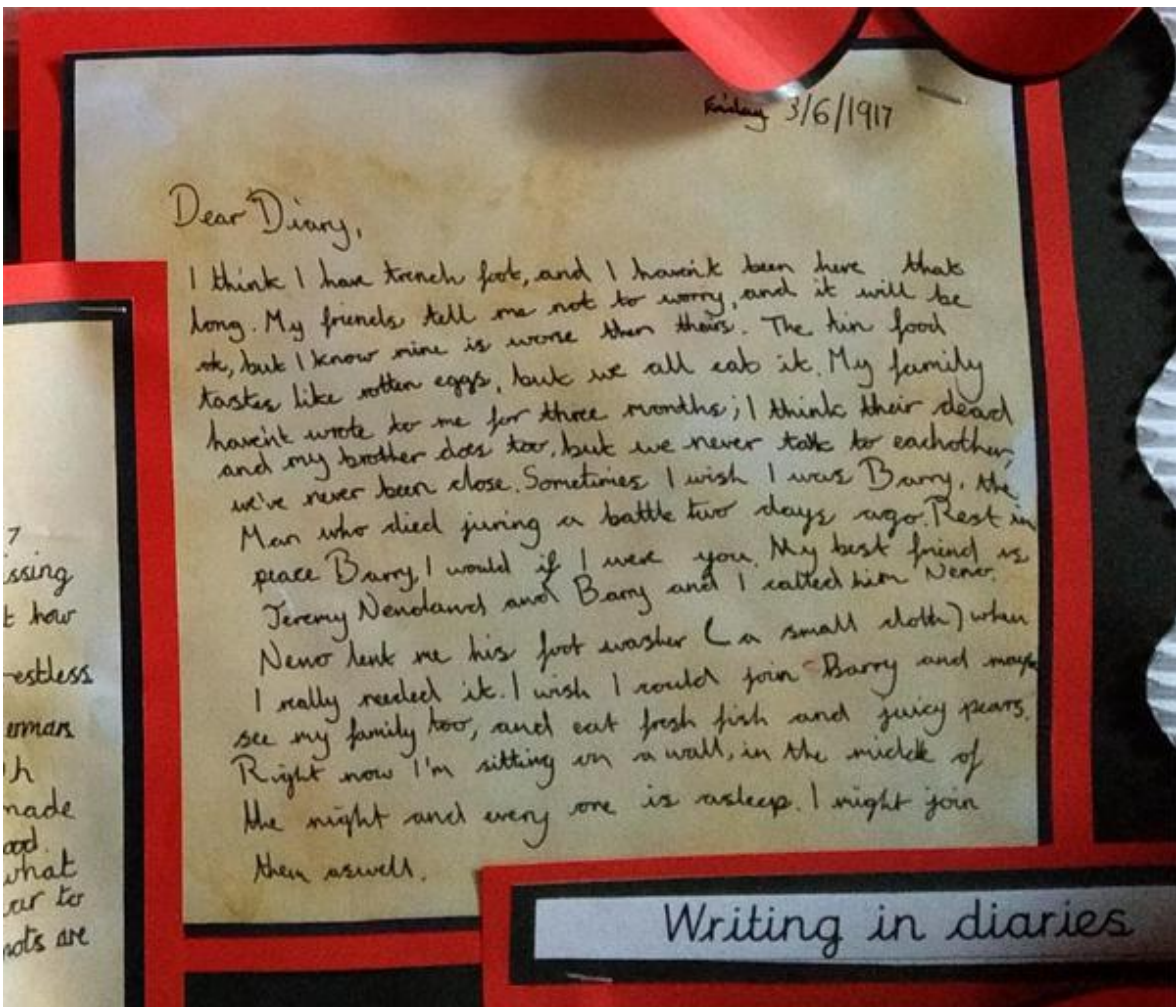 Friday 3/6/1917
Dear Diary,
I think I have trench foot, and I haven't been here that
long. My friends tell me not to worry, and it will be
ok, but I know mine is worse then theirs. The tin food
tastes like rotten eggs, but we all eat it. My family
haven't wrote to me for three months; I think their dead
and my brother does too, but we never talk to eachother,
we've never been close. Sometimes I wish I was Barry, the
Man who died juring a battle two days ago. Rest in
peace Barry, I would if I were you. My best friend is
Jeremy Nenoland and Barry and I called him Neno.
Neno lent me his foot washer (a small cloth) when
I really needed it. I wish I could join Barry and maybe
see my family too, and eat fresh fish and juicy pears.
Right now I'm sitting on a wall, in the middle of
the night and every one is asleep. I might join
them aswell.
7
ssing
t how
estless
erman
h
made
ood.
what
ar to
oots are
Writing in diaries